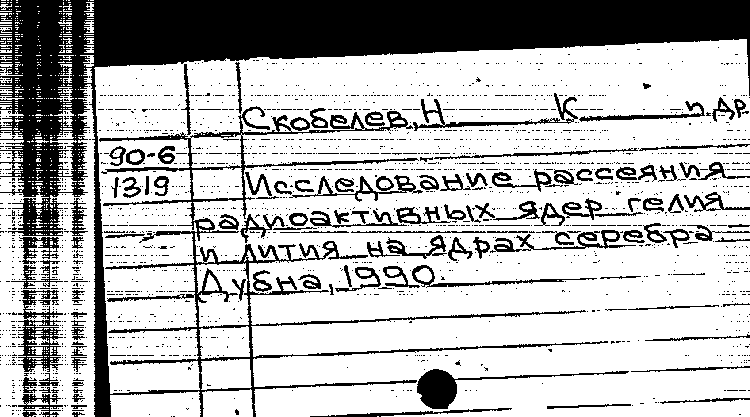 Скобелев, Н К и др
90-6
1319
Исследование рассеяния
радиоактивных ядер гелия
и лития на ядрах серебра.
Дубна, 1990.